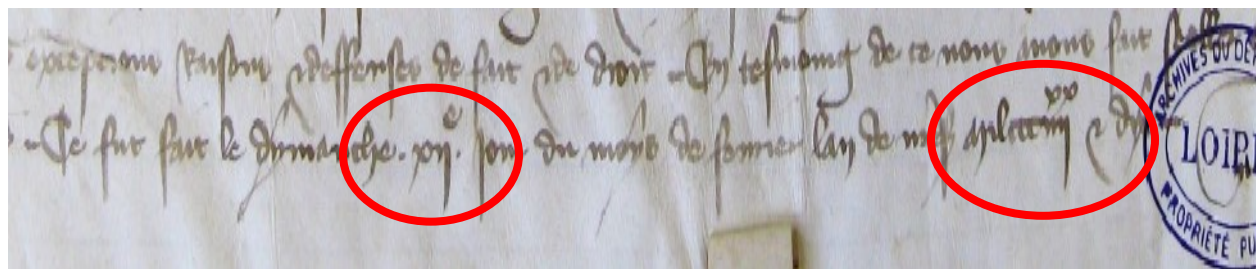 excepcions raisons & deffenses de fait & de droit. En tesmoing de ce nous avons fait
Ce fut fait le dymanche. xii e. jour du moys de fevrier lan de milccciiii xx &
ARCHIVES DU DÉ
LOIRE
PROPRIÉTÉ PU